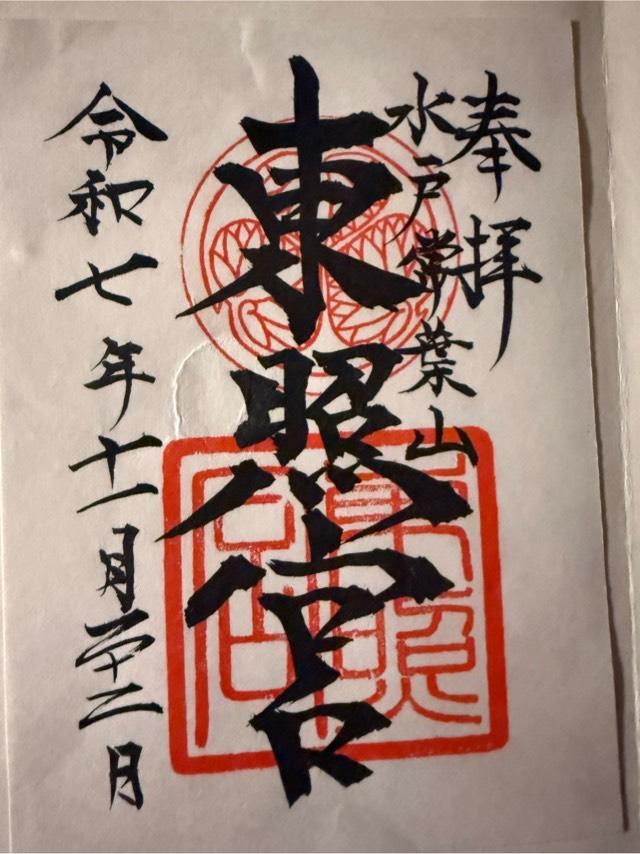 奉拝
水戸常葉山
東照宮
令和七年十一月二十二日